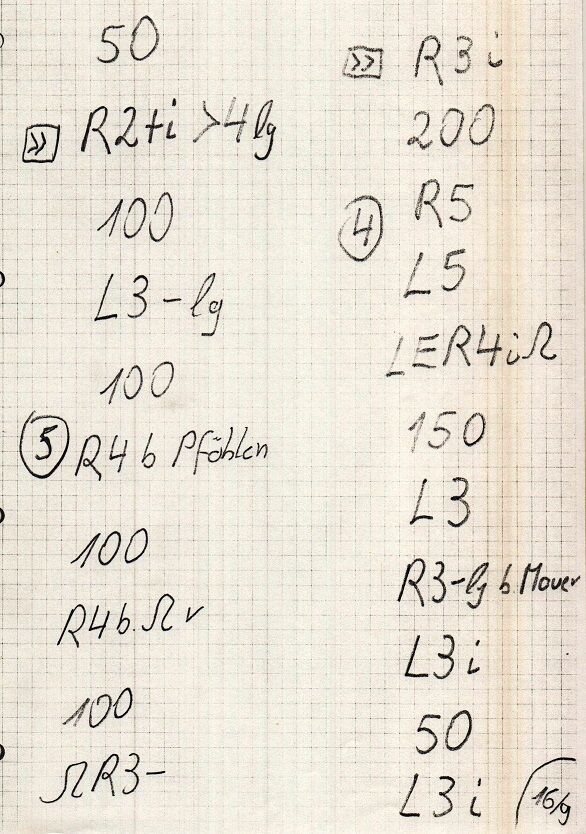 50
» R2+i >4 lg
100
L3-lg
100
5 R4 b Pfählen
100
R4 b. Ω v
100
ΩR3-
» R3i
200
4 R5
L5
LER4iΩ
150
L3
R3-lg b. Mauer
L3i
50
L3i
16/g